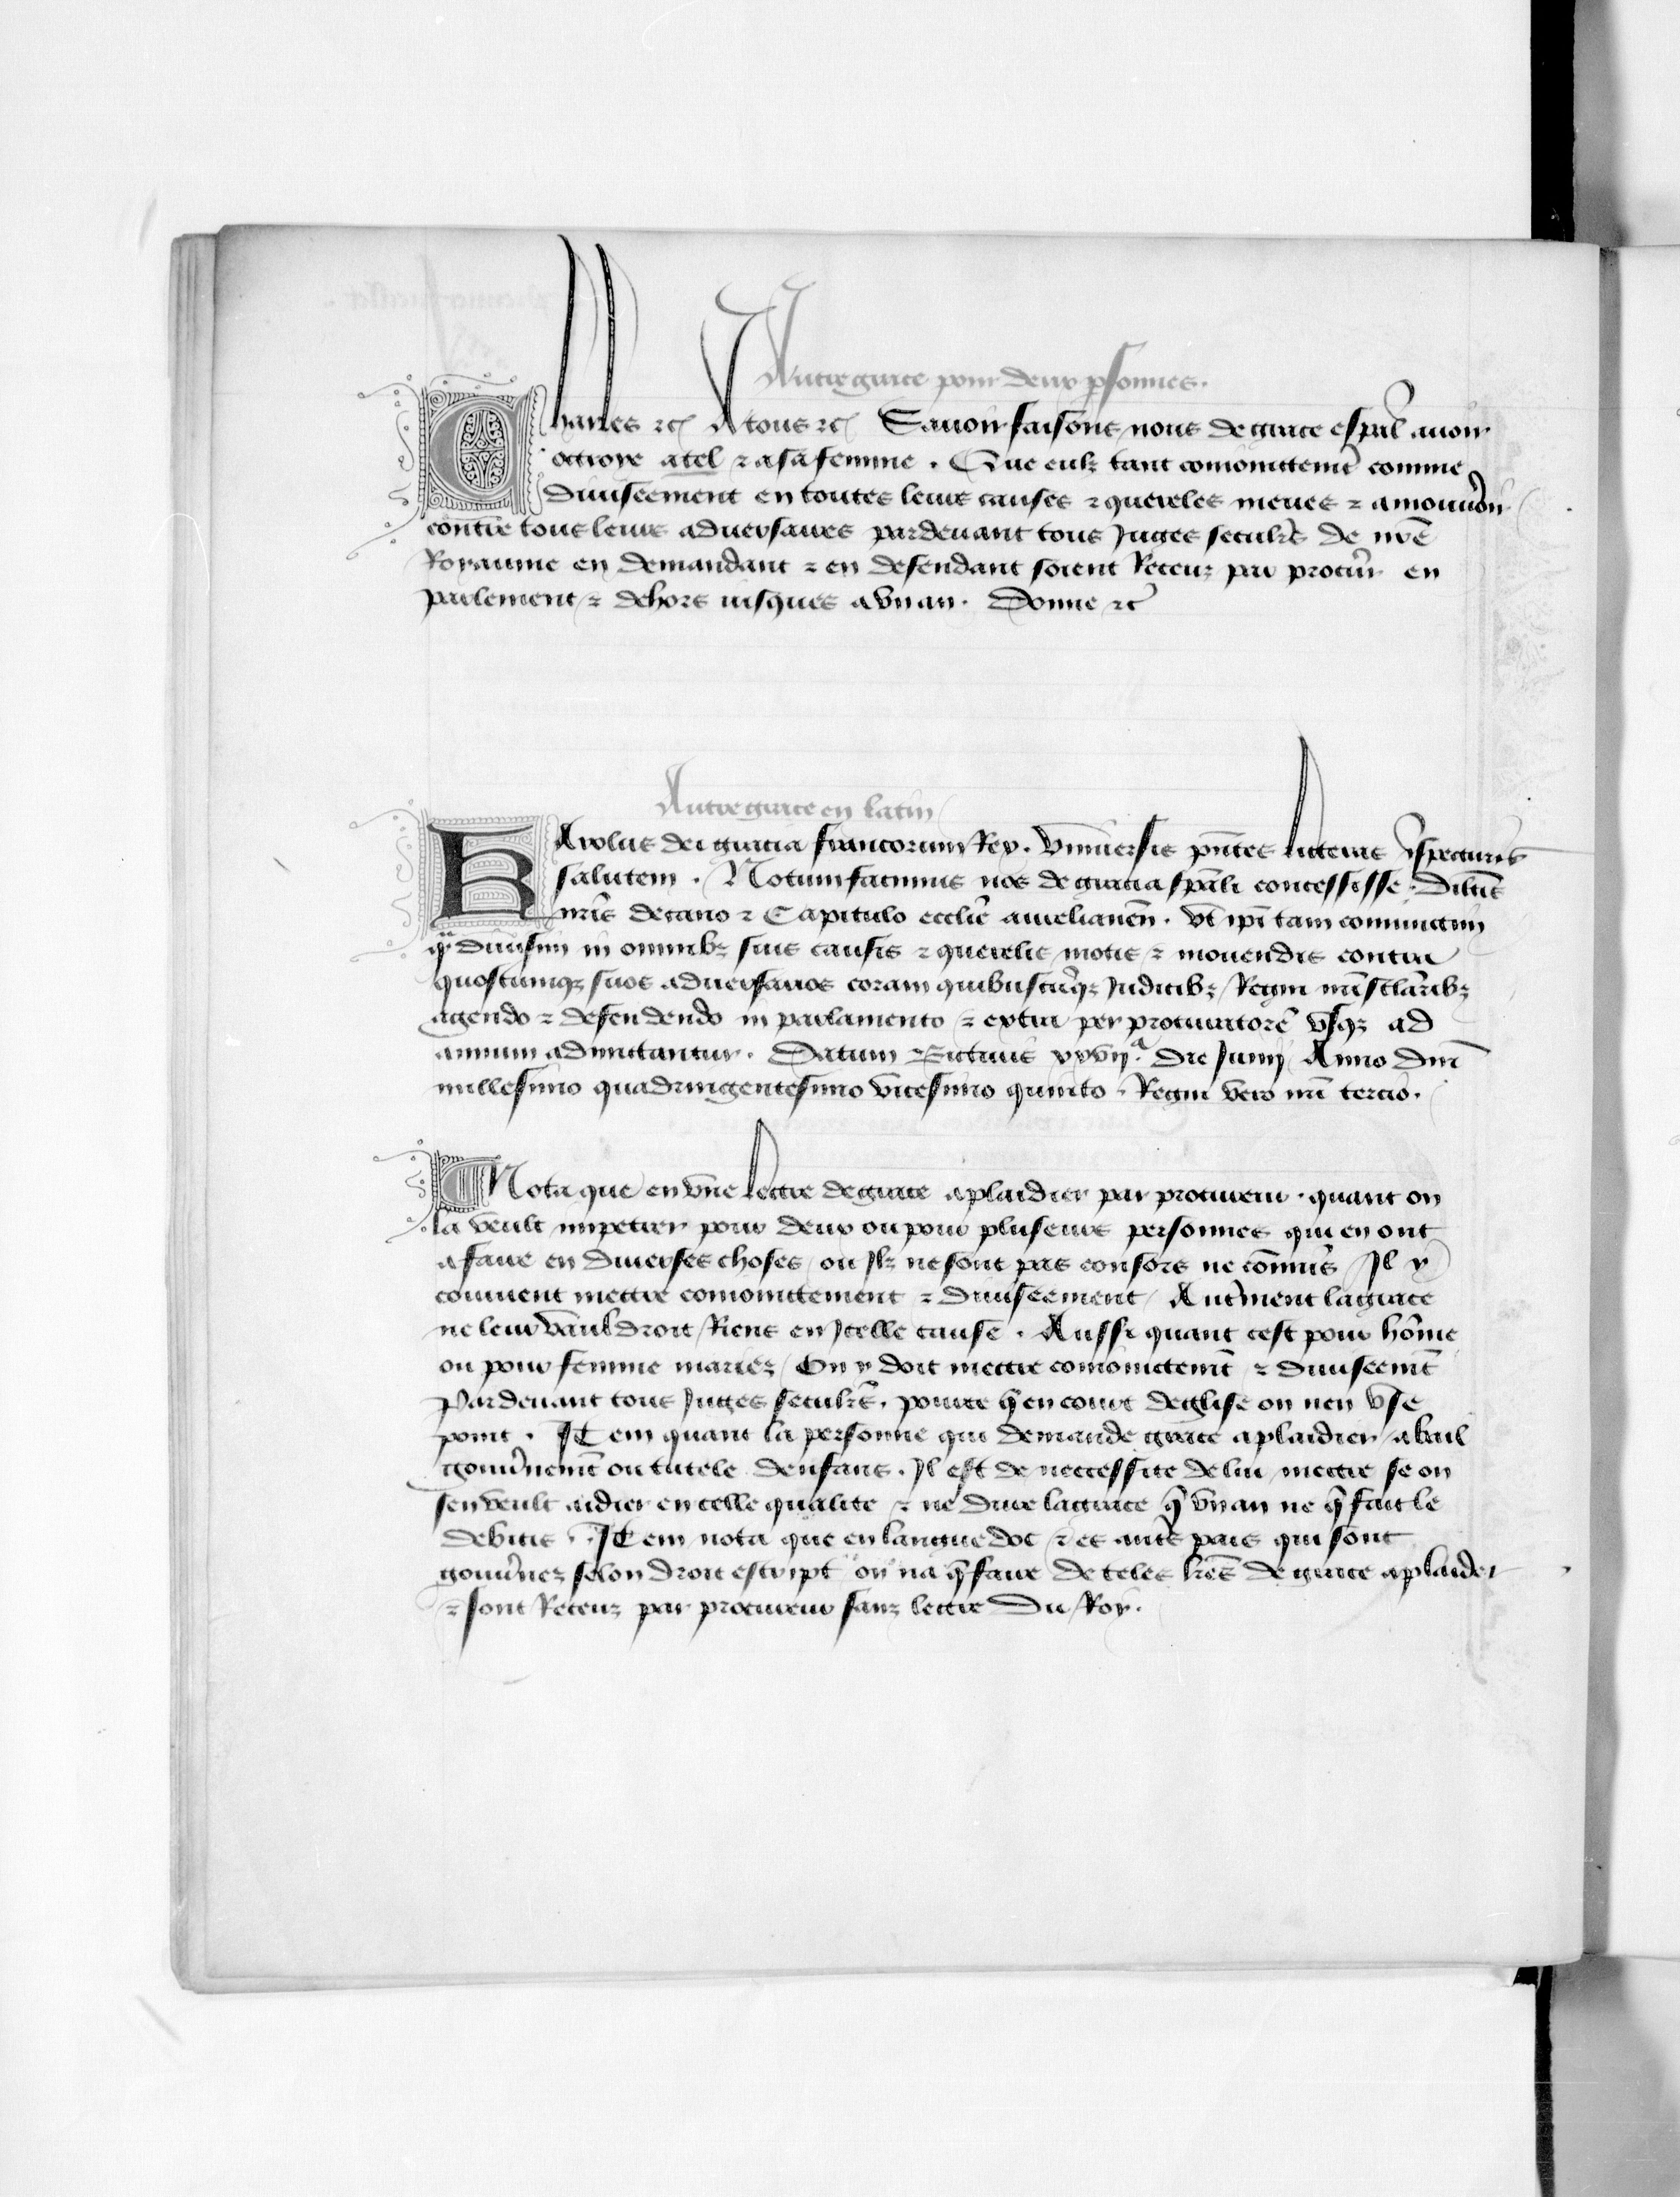 Autre grace pour deux psonnes.
Charles &c A tous &c Sauoir faisons nous de grace espāl auoir
octroye a tel & a sa femme. Que eulz tant conioinctemēt comme
diuiseement en toutes leurs causes & quereles meues & a mouuoir
contre tous leurs aduersaires pardeuant tous Juges seculrs de nrē
Royaume en demandant & en defendant soient Receuz par procur en
parlement & dehors iusques a vn an. Donne &c
Autre grace en latin
Karolus dei gracia francorum Rex. Vniuersis pntes litteras Inspecturis
salutem. Notum facimus nos de gracia spāli concessisse dilcīs
nrīs decano & Capitulo ecclīe aurelianeñ. Vt ipī tam coniunctim
q̄ diuisim in omnibz suis causis & querelis motis & mouendis contra
quoscumqz suos aduersarios coram quibuscūqz Judicibz Regni nrī sclāribz
agendo & defendendo in parlamento & extra per procuratorē vsqz ad
annum admittantur. Datum Pictauis xxvijᵃ die Junij Anno dnī
millesimo quadringentesimo vicesimo quinto. Regni vero nrī tercio.
Nota que en vne lectre de grace a plaidier par procureur. quant on
la veult impetrer pour deux ou pour pluseurs personnes qui en ont
a faire en diuerses choses ou Ilz ne sont pas consors ne cōmuns Il y
conuient mectre conioinctement & diuiseement Autrment la grace
ne leur vauldroit Riens en Icelle cause. Aussi quant cest pour hōme
ou pour femme mariez On y doit mectre conioinctemt & diuiseemt
Pardeuant tous Juges seculrs. pource q̄ en court deglise on nen vse
point. Item quant la personne qui demande grace a plaidier a bail
gouūnemt ou tutele denfans. Il est de necessite de lui mectre se on
sen veult aidier en celle qualite & ne dure la grace q̄ vn an ne q̄ fait le
debitis. Item nota que en languedoc & es autrs pais qui sont
gouūnez selon droit escript on na q̄ faire de teles lrēs de grace a plaidier
& sont Receuz par procureur sanz lectre du Roy.